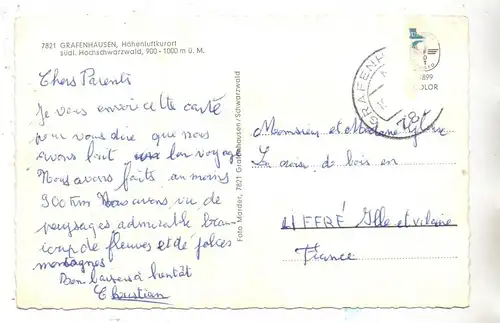 7821 GRAFENHAUSEN, Höhenluftkurort
südl. Hochschwarzwald, 900-1000 m ü. M.
Chers Parents
Je vous envoie cette carte
pour vous dire que nous
avons fait bon voyage
Nous avons faits au moins
900 km Nous avons vu de
paysages admirable beau-
coup de fleuves et de jolies
montagnes
Bon baisers à bientôt
Christian
Foto Marder, 7821 Grafenhausen/Schwarzwald
GRAFENH
78
1899
COLOR
Monsieur et Madame
La croix de bois en
LIFFRÉ Ille et vilaine
France